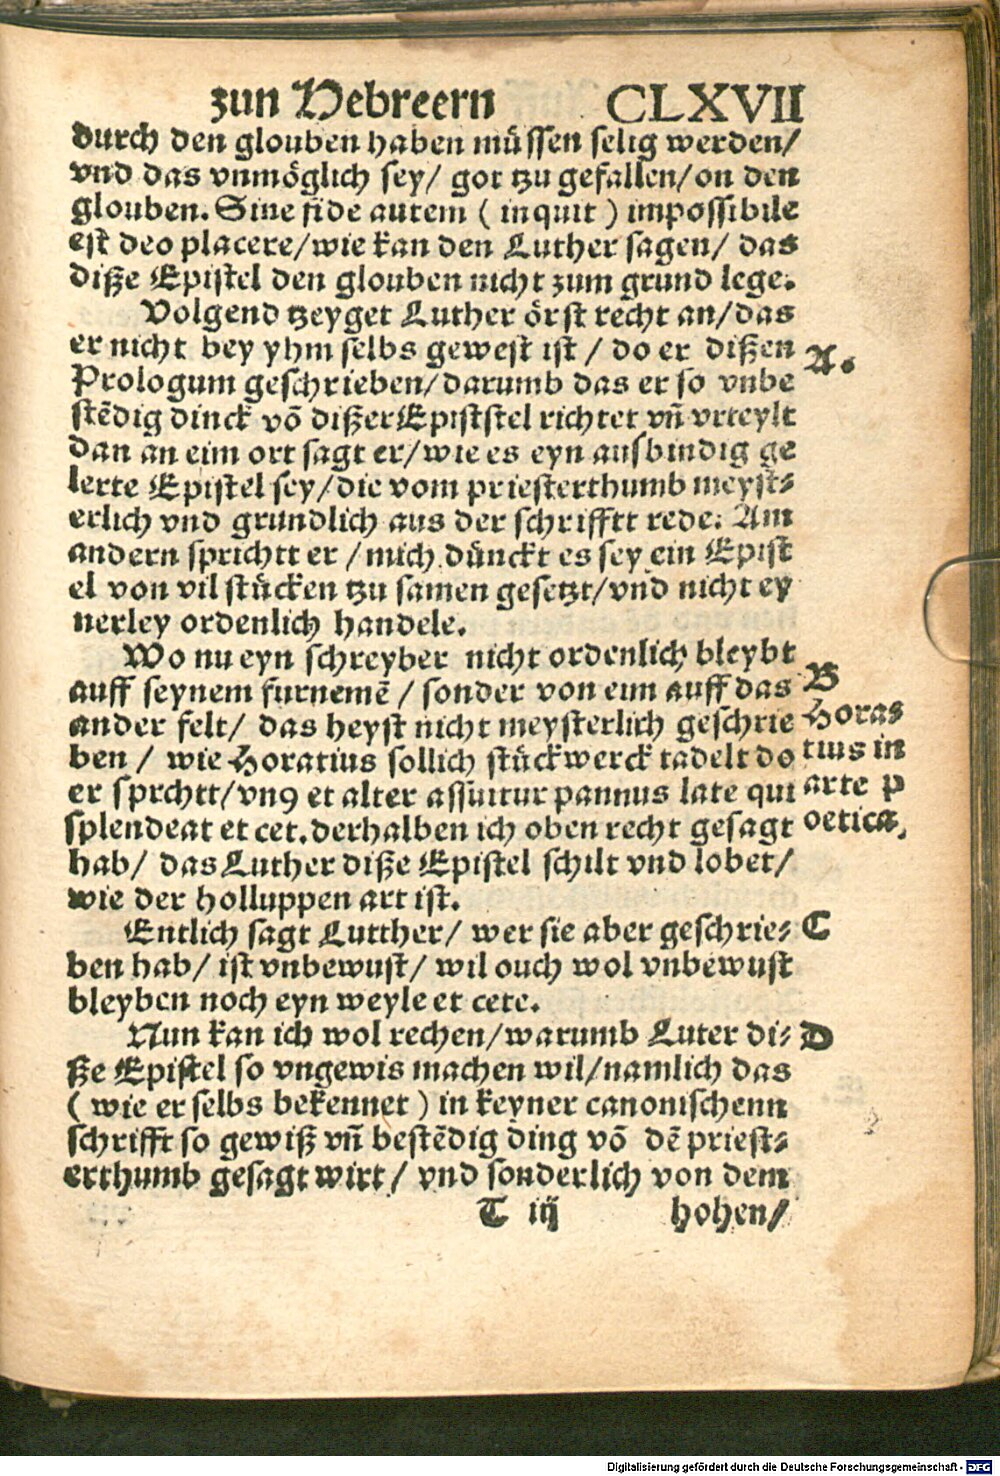 zun Hebreern CLXVII
durch den glouben haben müssen selig werden/
vnd das vnmöglich sey/ got tzu gefallen/ on den
glouben. Sine fide autem ( inquit ) impossibile
est deo placere/ wie kan den Luther sagen/ das
diße Epistel den glouben nicht zum grund lege.
Volgend tzeyget Luther örst recht an/ das
er nicht bey yhm selbs gewest ist / do er dißen
A.
Prologum geschrieben/ darumb das er so vnbe
stēdig dinck vō dißer Epiststel richtet vñ vrteylt
dan an eim ort sagt er/ wie es eyn ausbindig ge
lerte Epistel sey/ die vom priesterthumb meyst-
erlich vnd grundlich aus der schrifftt rede. Am
andern sprichtt er / mich dünckt es sey ein Epist
el von vil stücken tzu samen gesetzt/ vnd nicht ey
nerley ordenlich handele.
Wo nu eyn schreyber nicht ordenlich bleybt
B
auff seynem furnemē / sonder von eim auff das
ander felt/ das heyst nicht meysterlich geschrie
ben / wie Horatius sollich stückwerck tadelt do
er sprchtt/ vnꝯ et alter assuitur pannus late qui
splendeat et cet. derhalben ich oben recht gesagt
Horas
tius in
arte p
oetica.
hab/ das Luther diße Epistel schilt vnd lobet/
wie der holluppen art ist.
Entlich sagt Lutther/ wer sie aber geschrie-
C
ben hab/ ist vnbewust/ wil ouch wol vnbewust
bleyben noch eyn weyle et cete.
Nun kan ich wol rechen/ warumb Luter di-
D
ße Epistel so vngewis machen wil/ namlich das
( wie er selbs bekennet ) in keyner canonischenn
schrifft so gewiß vñ bestēdig ding vō dē priest-
erthumb gesagt wirt / vnd sonderlich von dem
T iij hohen/
Digitalisierung gefördert durch die Deutsche Forschungsgemeinschaft - DFG